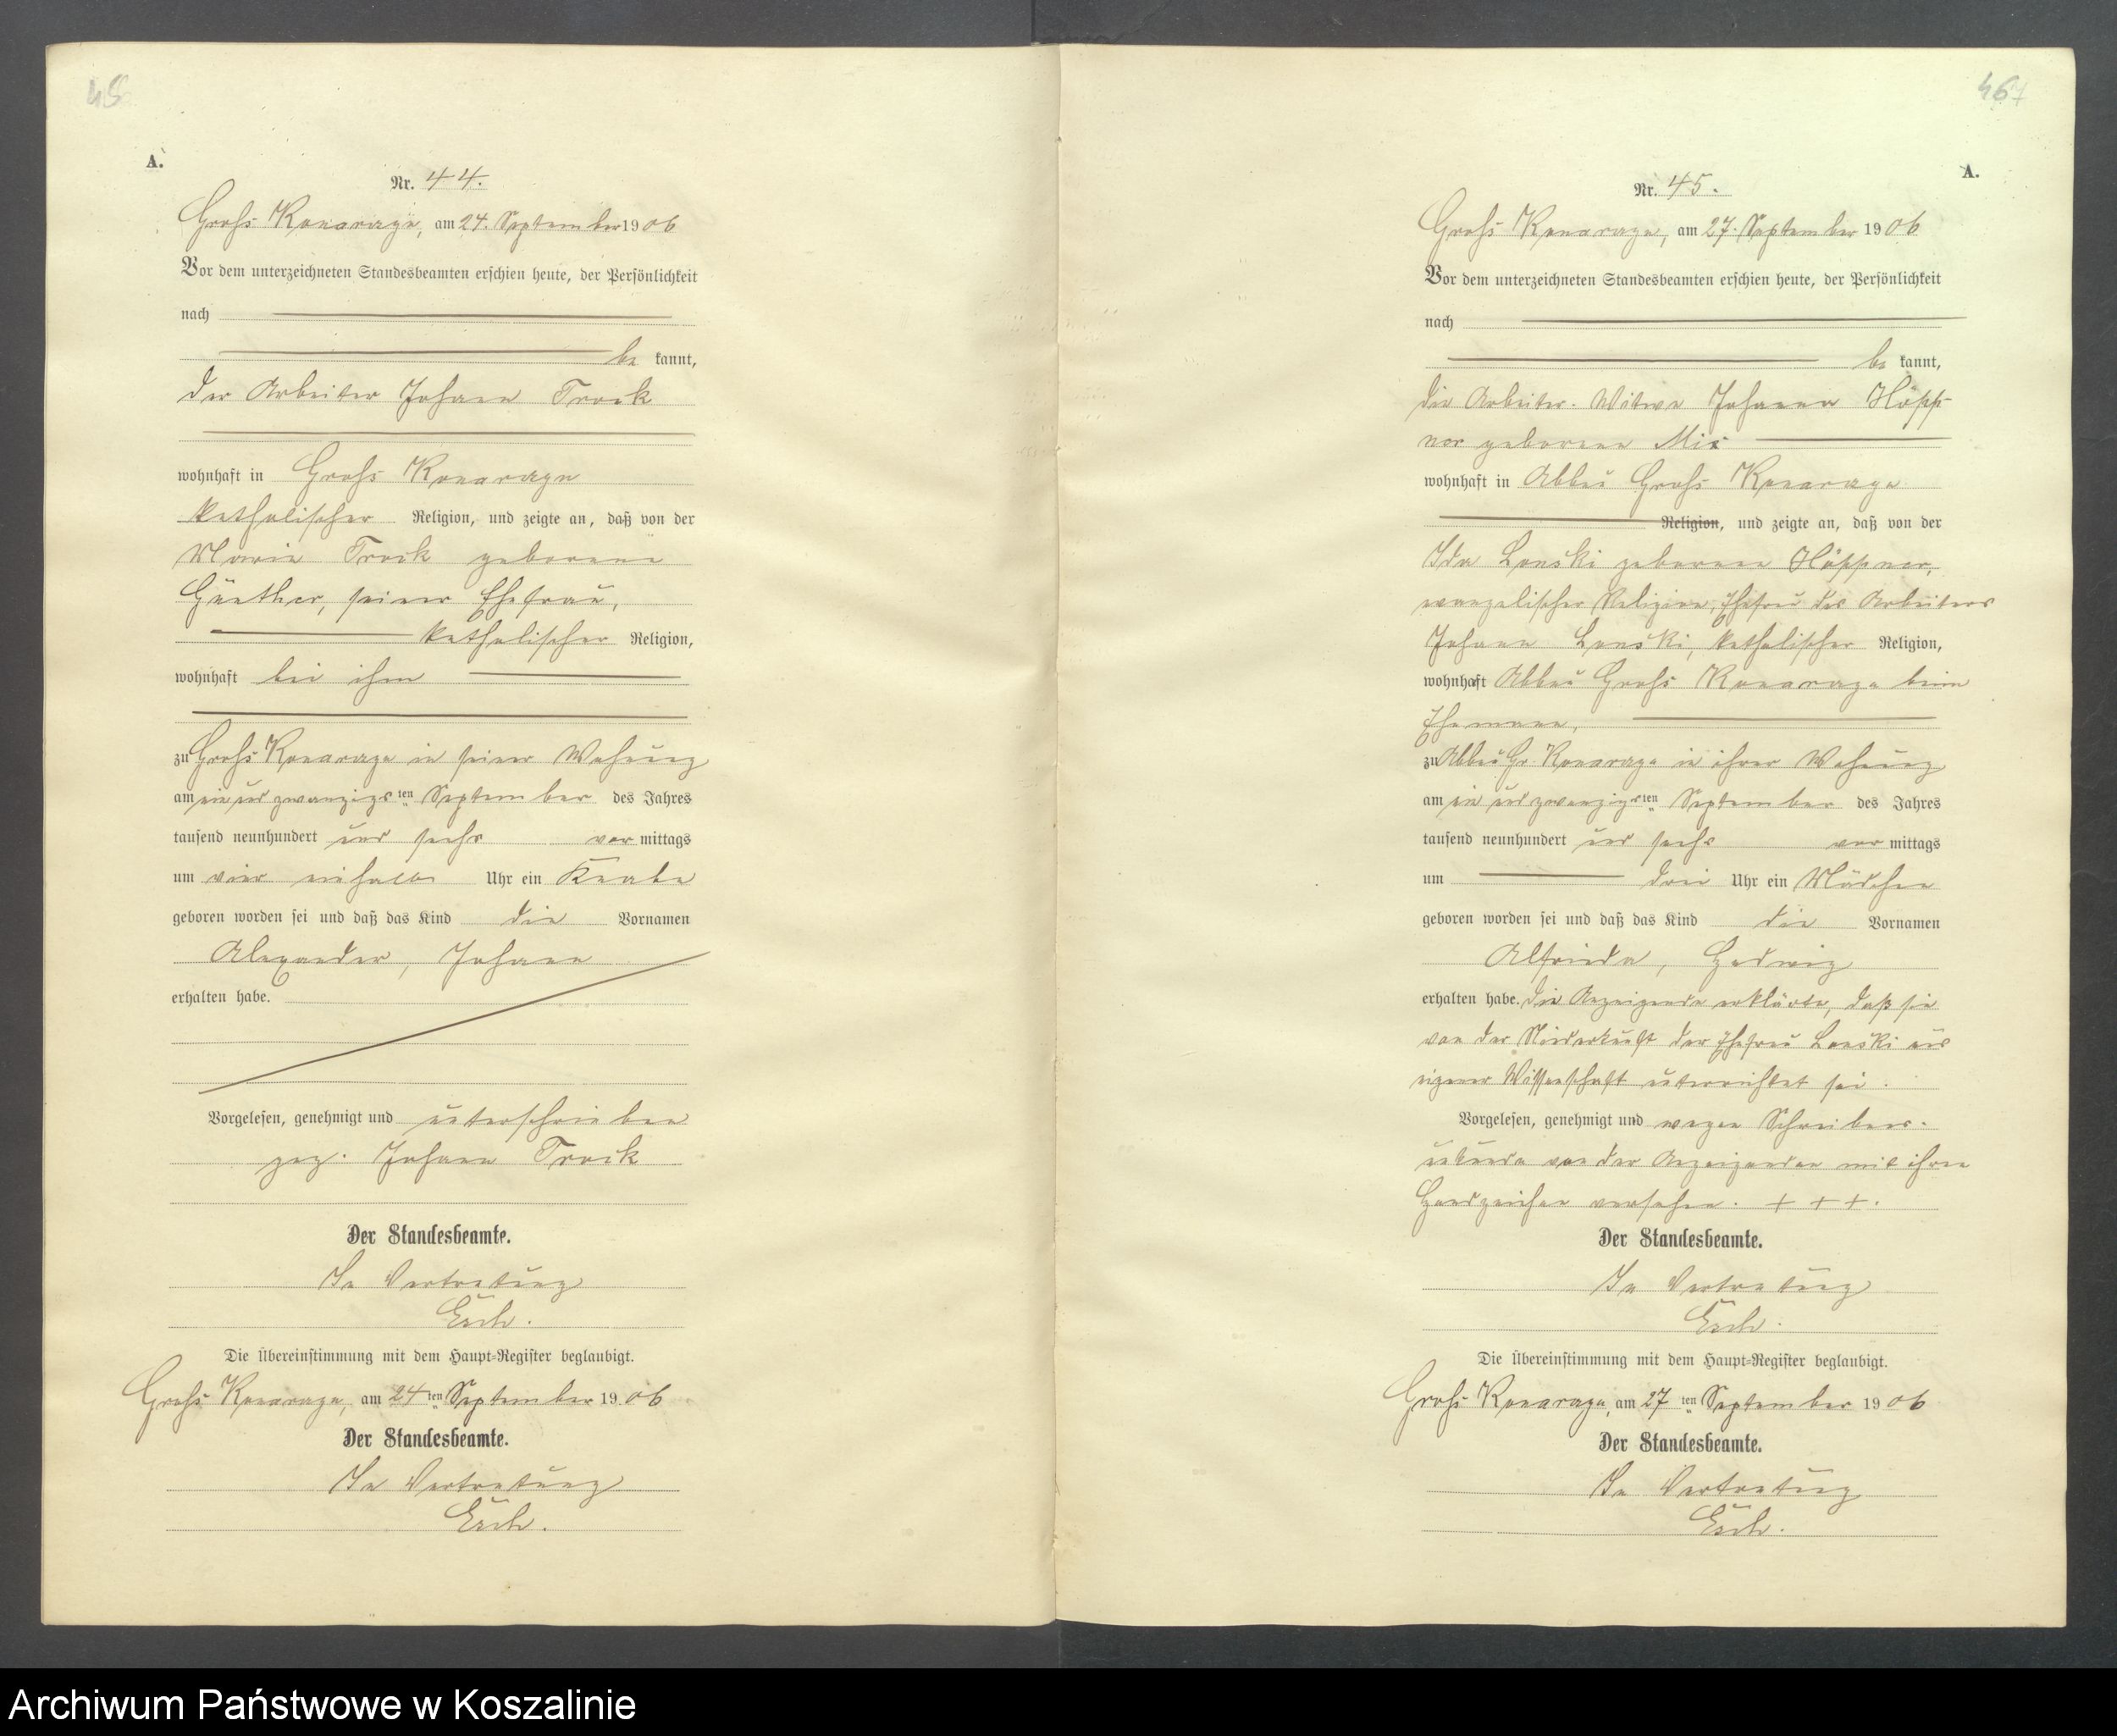 45
A.
Nr. 44.
Groß Konarzyn, am 24. September 1906
Vor dem unterzeichneten Standesbeamten erschien heute, der Persönlichkeit
nach
be kannt,
der Arbeiter Johann
wohnhaft in Groß Konarzyn
katholischer Religion, und zeigte an, daß von der
Maria geborene
Günther, seiner Ehefrau,
katholischer Religion,
wohnhaft bei ihm
zu Groß Konarzyn in seiner Wohnung
am ein und zwanzigsten September des Jahres
tausend neunhundert und sechs vor mittags
um vier einhalb Uhr ein Knabe
geboren worden sei und daß das Kind die Vornamen
Alexander, Johann
erhalten habe.
Vorgelesen, genehmigt und unterschrieben
gez. Johann
Der Standesbeamte.
In Vertretung
Esch.
Die Übereinstimmung mit dem Haupt-Register beglaubigt.
Groß Konarzyn, am 24ten September 1906
Der Standesbeamte.
In Vertretung
Esch.
467
A.
Nr. 45.
Groß Konarzyn, am 27. September 1906
Vor dem unterzeichneten Standesbeamten erschien heute, der Persönlichkeit
nach
be kannt,
die Arbeiter-Witwe Johanna Höpp-
ner geborene
wohnhaft in Abbau Groß Konarzyn
Religion, und zeigte an, daß von der
Ida Lonski geborene Höppner,
evangelischer Religion, Ehefrau des Arbeiters
Johann Lonski, katholischer Religion,
wohnhaft Abbau Groß Konarzyn beim
Ehemann,
zu Abbau Gr. Konarzyn in ihrer Wohnung
am ein und zwanzigsten September des Jahres
tausend neunhundert und sechs vor mittags
um drei Uhr ein Mädchen
geboren worden sei und daß das Kind die Vornamen
Alfrieda, Hedwig
erhalten habe. Die Anzeigende erklärte, daß sie
von der Niederkunft der Ehefrau Lonski aus
eigener Wissenschaft unterrichtet sei.
Vorgelesen, genehmigt und wegen Schreibens-
unkunde von der Anzeigenden mit ihrem
Handzeichen versehen. + + +.
Der Standesbeamte.
In Vertretung
Esch.
Die Übereinstimmung mit dem Haupt-Register beglaubigt.
Groß Konarzyn, am 27ten September 1906
Der Standesbeamte.
In Vertretung
Esch.
Archiwum Państwowe w Koszalinie